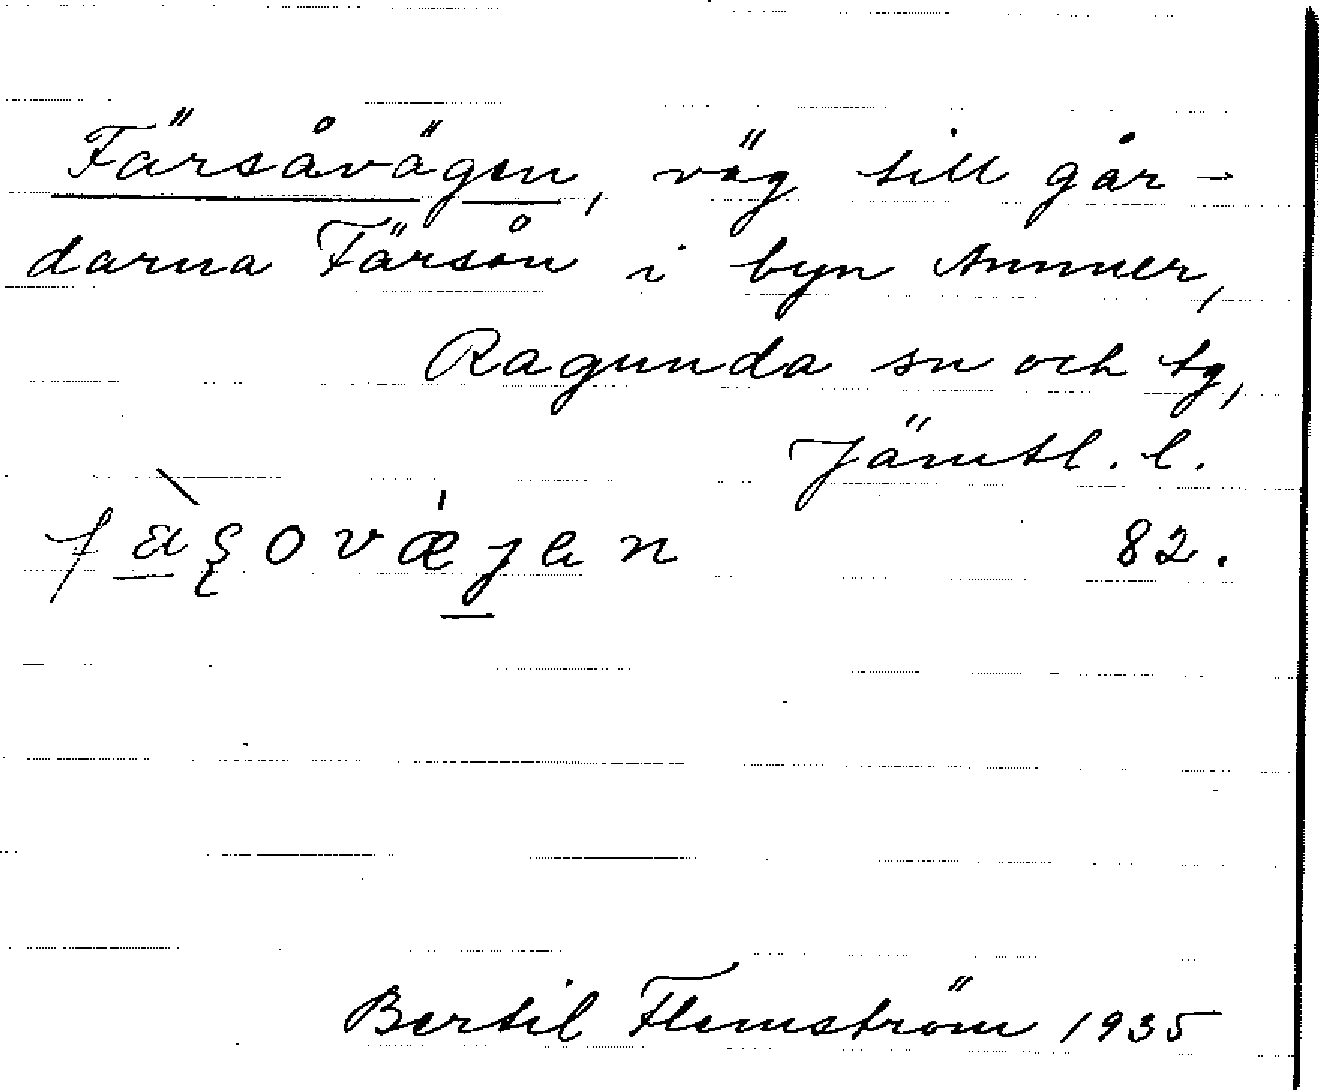 Färsåvägen, väg till går-
darna Färsån i byn Ammer,
Ragunda sn och tg,
Jämtl. l.
82.
Bertil Flemström 1935